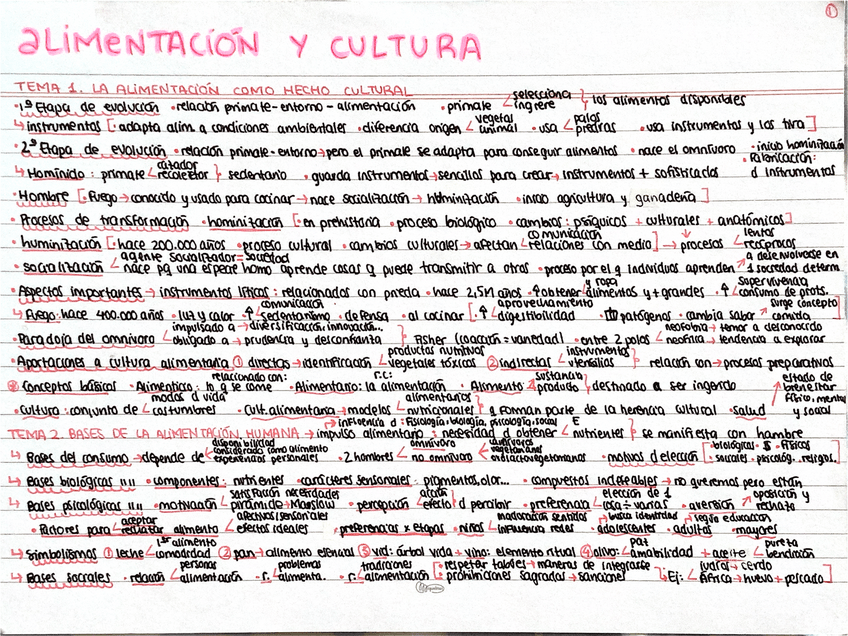 ①
ALIMENTACIÓN Y CULTURA
TEMA 1. LA ALIMENTACIÓN COMO HECHO CULTURAL
·1ª Etapa de evolución ·relación primate-entorno-alimentación ·primate < selecciona / ingiere } los alimentos disponibles
↳ instrumentos [·adapta alim. a condiciones ambientales ·diferencia origen < vegetal / animal ·usa < palos / piedras ·usa instrumentos y los tira]
·2ª Etapa de evolución ·relación primate-entorno→pero el primate se adapta para conseguir alimentos ·nace el omnívoro ·inicio hominización
↳ Homínido: primate < cazador / recolector } sedentario ·guarda instrumentos→sencillos para crear→instrumentos + sofisticados ·Fabricación: d instrumentos
·Hombre [·Fuego→conocido y usado para cocinar→nace socialización→huminización ·inicio agricultura y ganadería]
·Procesos de transformación ·hominización [·en prehistoria ·proceso biológico ·cambios: psíquicos + culturales + anatómicos]
·huminización [·hace 200.000 años ·proceso cultural ·cambios culturales→afectan < comunicación / relaciones con medio] → procesos < lentos / recíprocos
·socialización < agente socializador=sociedad / nace pq una especie homo aprende cosas q puede transmitir a otros ·proceso por el q individuos aprenden ↗ a desenvolverse en 1 sociedad determ.
·Aspectos importantes→instrumentos líticos: relacionados con piedra ·hace 2,5M años ·↑ obtener < y ropa / alimentos y + grandes ·↑ < supervivencia / consumo de prots.
↳ Fuego: hace 400.000 años ·luz y calor ·↑ < comunicación / sedentarismo ·defensa ·al cocinar [·↑ < aprovechamiento / digestibilidad patógenos ·cambia sabor ↗ surge concepto] comida
·Paradoja del omnívoro < impulsado a→diversificación, innovación... / obligado a→prudencia y desconfianza } Fisher (coacción=variedad) ·entre 2 polos < neofobia→temor a desconocido / neofilia→tendencia a explorar
·Aportaciones a cultura alimentaria ① directas→identificación < productos nutritivos / vegetales tóxicos ② indirectas < instrumentos / utensilios relación con→procesos preparativos
·Conceptos básicos ·Alimenticio: relacionado con: h q se come ·Alimentario: r.c: la alimentación ·Alimento < sustancia / producto } destinado a ser ingerido estado de bienestar físico, mental y social
·Cultura: conjunto de < modos d vida / costumbres ·Cult. alimentaria→modelos < alimentarios / nutricionales } q forman parte de la herencia cultural ·salud
TEMA 2. BASES DE LA ALIMENTACIÓN HUMANA → impulso alimentario: necesidad d obtener < E / nutrientes } se manifiesta con hambre
→ influencia d: fisiología, biología, psicología, social
↳ Bases del consumo→depende de < disponibilidad / considerado como alimento / experiencias personales ·2 hombres < omnívoro / no omnívoro < carnívoros / vegetarianos / ovolactovegetarianos ·motivos d elección [·biológicos ·$ ·físicos / ·sociales ·psicológ. ·religos.]
↳ Bases biológicas "" ·componentes: nutrientes ·carácteres sensoriales: pigmentos, olor... ·compuestos indeseables→no queremos pero están
↳ Bases psicológicas "" ·motivación < satisfacción necesidades / pirámide→Maslow ·percepción < acción / efecto } d percibir ·preferencia < elección de 1 / cosa ÷ varias ·aversión ↗ oposición y rechazo
·Factores para < aceptar / rechazar alimento < afectivos/sensoriales / efectos ideales ·preferencias x etapas ·niños < maduración sentidos / influencia redes ·adolescentes → busca identidad ·adultos → según educación ·mayores
↳ Simbolismos ① leche < 1er alimento / comodidad ② pan→alimento esencial ③ vid: árbol vida + vino: elemento ritual ④ olivo < paz / amabilidad + aceite < pureza / bendición
↳ Bases sociales ·relación < personas / alimentación ·r. < problemas / alimenta. ·r. < tradiciones / alimentación [·respetar tabúes→maneras de integrarse / ·prohibiciones sagradas→sanciones] Ej: < judíos→cerdo / África→huevo + pescado]